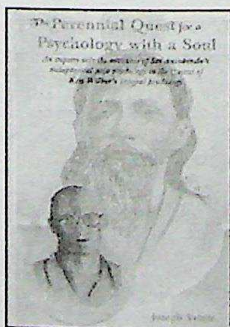 The Perennial Quest for a
Psychology with a Soul
An inquiry into the relevance of Sri Aurobindo's
metaphysical yoga psychology in the context of
Ken Wilber's integral psychology
Joseph Vrinte